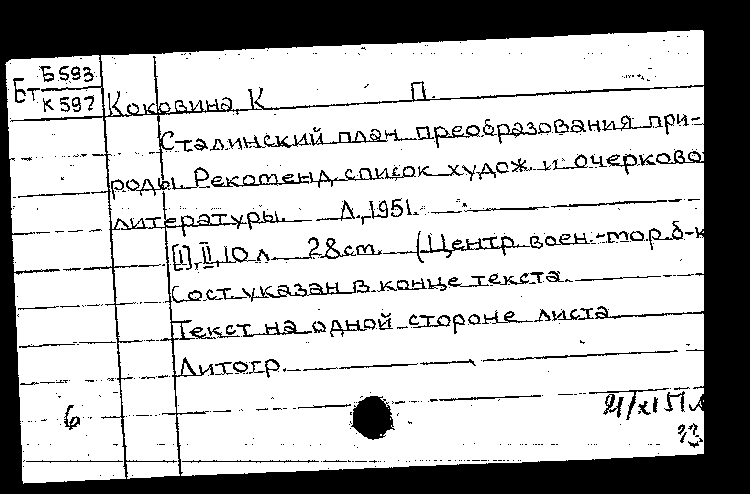 Бт Б593
К597
Коковина, К П.
Сталинский план преобразования при-
роды. Рекоменд. список худож. и очерково
литературы. Л., 1951.
[I], II, 10 л. 28 ст. (Центр. воен.-мор. б-к
Сост. указан в конце текста.
Текст на одной стороне листа.
Литогр.
6
33